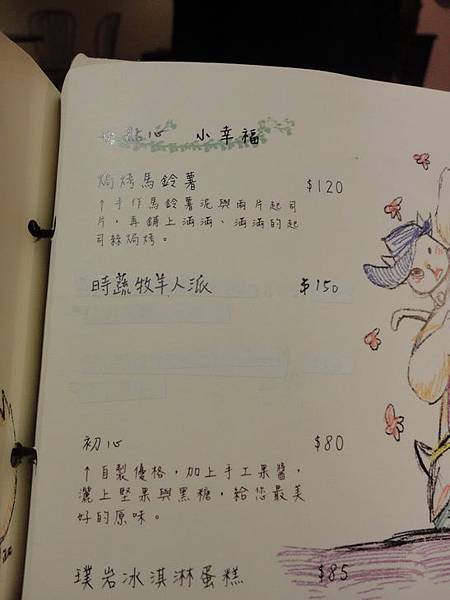 點心 小幸福
焗烤馬鈴薯 $120
↑手作馬鈴薯泥與兩片起司
片，再鋪上滿滿、滿滿的起
司絲焗烤。
時蔬牧羊人派 $150
初心 $80
↑自製優格，加上手工果醬，
灑上堅果與黑糖，給您最美
好的原味。
璞岩冰淇淋蛋糕 $85